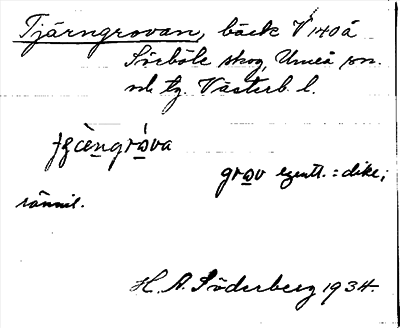 Tjärngrovan, bäck V 140 å
Sörböle skog, Umeå sn.
nb tg. Västerb. l.
grov egentl. : dike;
rännil.
H. A. Söderberg 1934.